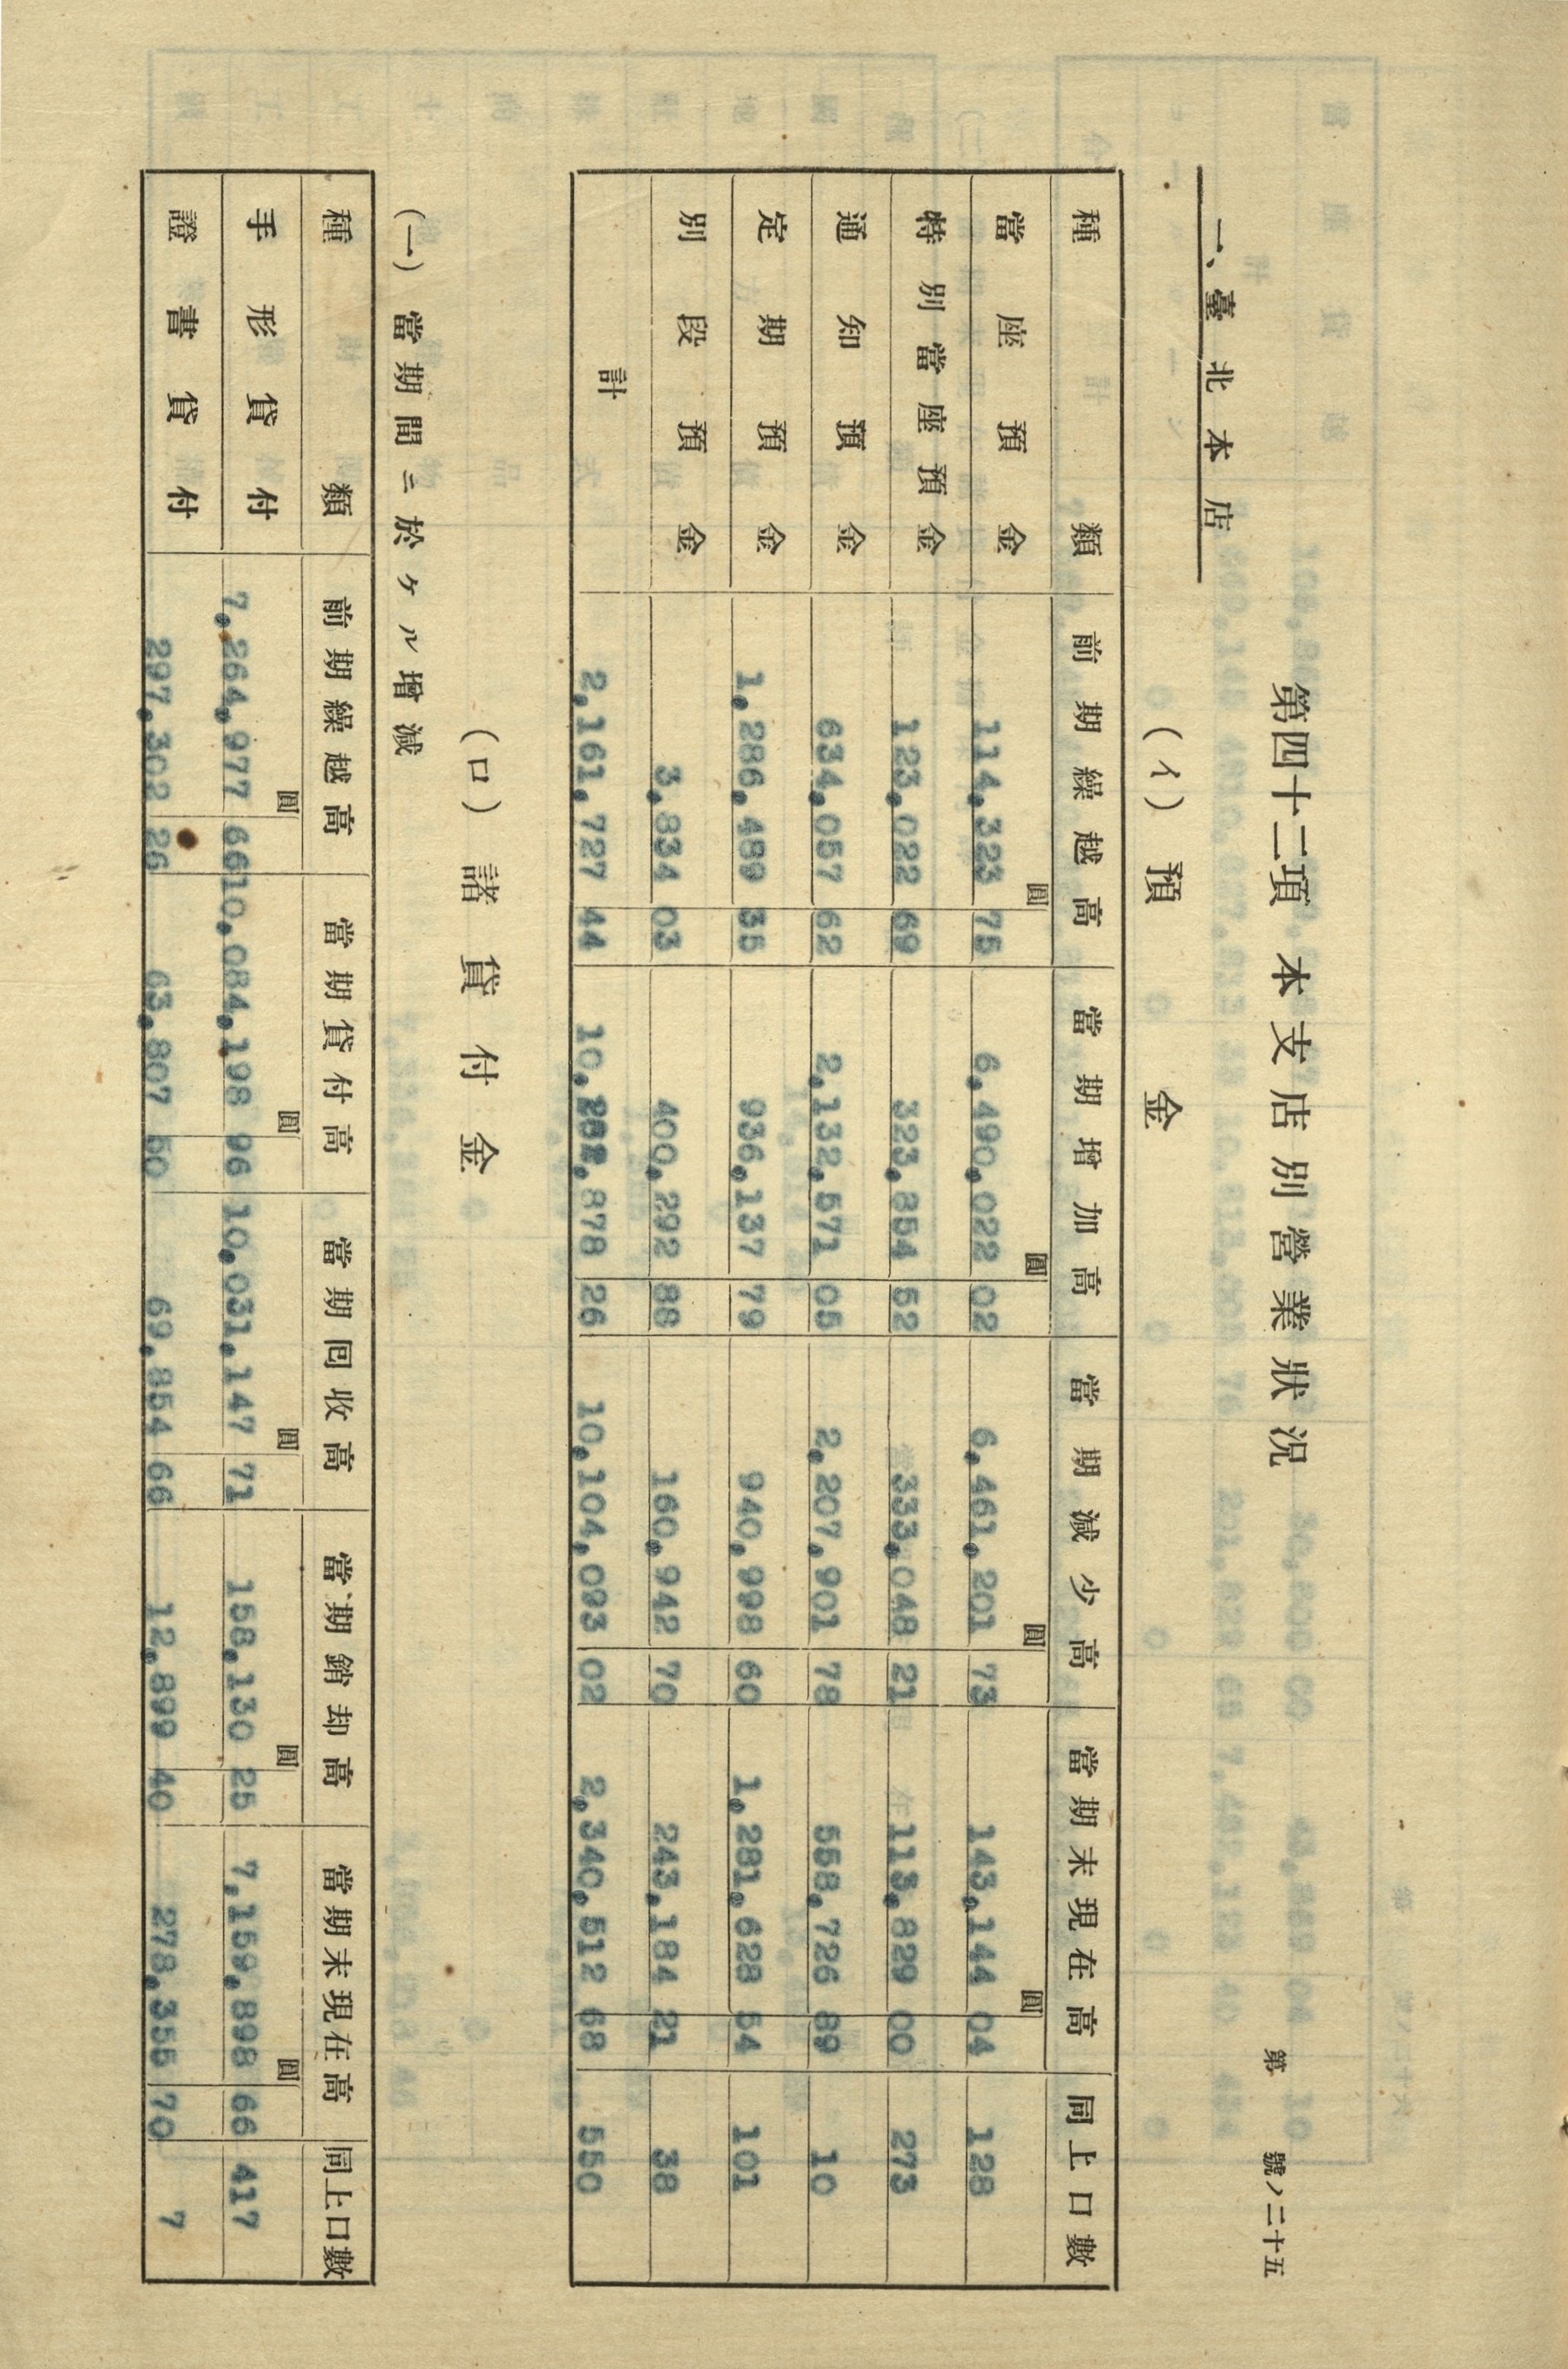 第　號ノ二十五
第四十二項　本支店別營業狀況
一、臺北本店
(イ)　預金
種類　前期繰越高　當期增加高　當期減少高　當期末現在高　同上口數
圓　圓　圓　圓
當座預金　114,323 75　6,490,022 02　6,461,201 73　143,144 04　128
特別當座預金　123,022 69　323,854 52　333,048 21　113,829 00　273
通知預金　634,057 62　2,132,571 05　2,207,901 78　558,726 89　10
定期預金　1,286,489 35　936,137 79　940,998 60　1,281,628 54　101
別段預金　3,834 03　400,292 88　160,942 70　243,184 21　38
計　2,161,727 44　10,282,878 26　10,104,093 02　2,340,512 68　550
(ロ)　諸貸付金
(一)　當期間ニ於ケル增減
種類　前期繰越高　當期貸付高　當期回收高　當期銷却高　當期末現在高　同上口數
圓　圓　圓　圓　圓
手形貸付　7,264,977 66　10,084,198 96　10,031,147 71　158,130 25　7,159,898 66　417
證書貸付　297,302 26　63,807 50　69,854 66　12,899 40　278,355 70　7